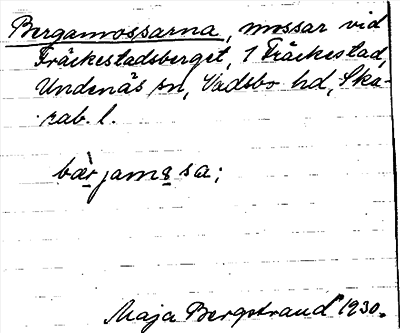 Bergamossarna, mossar vid
Fräckestadsberget, 1 Fräckestad,
Undenäs sn, Vadsbo hd, Ska-
rab. l.
bær̀jamə sa;
Maja Bergstrand 1930.